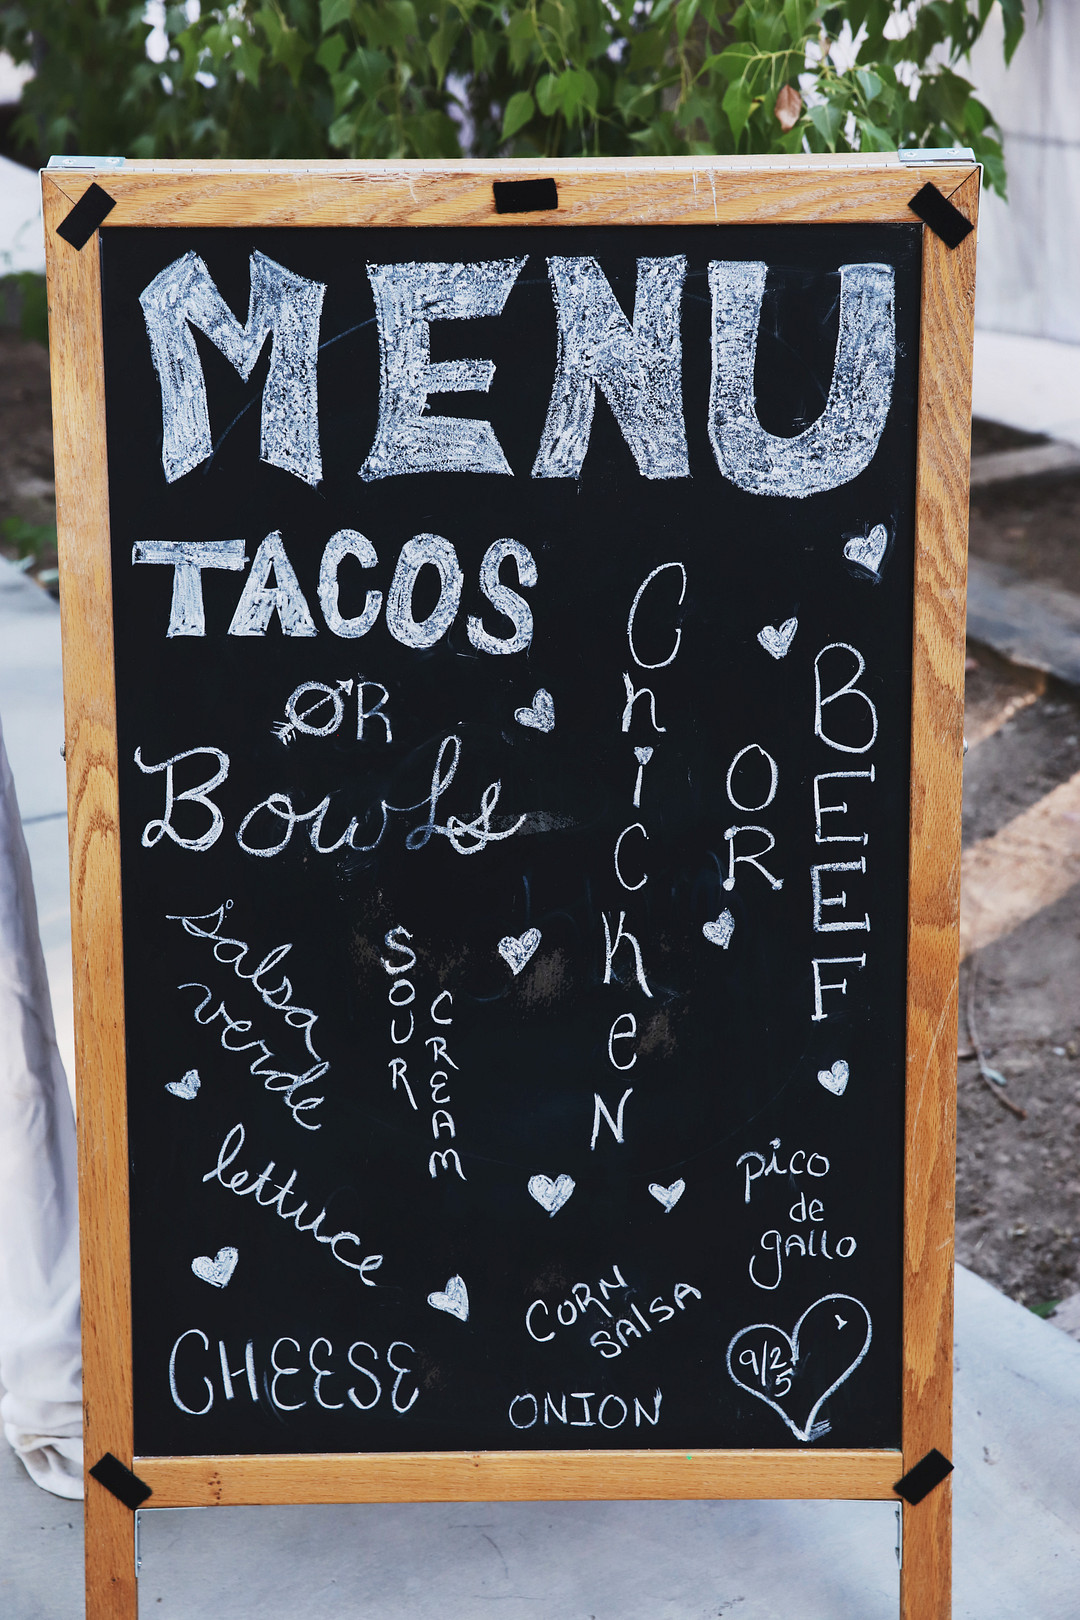 MENU
TACOS
OR
Bowls
Chicken
OR
BEEF
salsa
verde
SOUR
CREAM
lettuce
CHEESE
CORN
SAlSA
ONION
pico
de
gallo
9/25